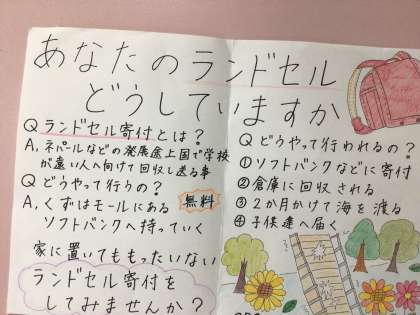 あなたのランドセル
どうしていますか
Q ランドセル寄付とは？
A. ネパールなどの発展途上国で学校
が遠い人へ向けて回収し送る事
Q どうやって行うの？
A. くずはモールにある 無料
ソフトバンクへ持っていく
家に置いてももったいない
ランドセル寄付を
してみませんか？
Q どうやって行われるの？
①ソフトバンクなどに寄付
②倉庫に回収される
③2か月かけて海を渡る
④子供達へ届く